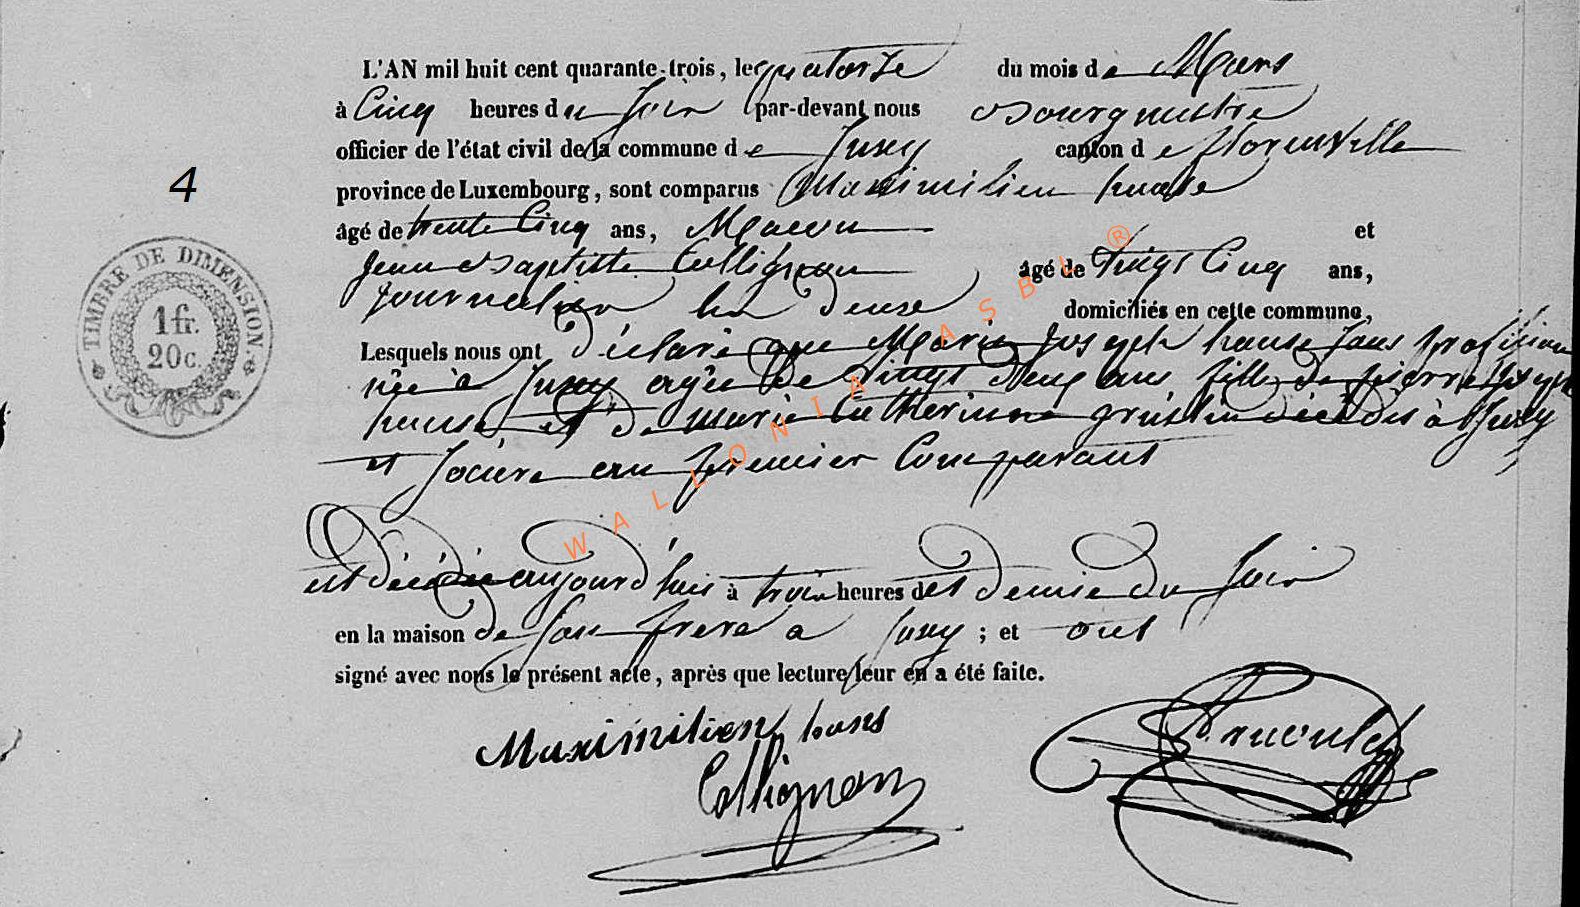 4
TIMBRE DE DIMENSION.
1 fr.
20c.
L'AN mil huit cent quarante-trois, le quatorze du mois de Mars
à Cinq heures du soir par-devant nous Bourgmestre
officier de l'état civil de la commune de Izel canton de florenville
province de Luxembourg, sont comparus Maximilien
âgé de trente Cinq ans, Macon et
Jean Baptiste Collignon âgé de vingt Cinq ans,
journalier les deux domiciliés en cette commune,
Lesquels nous ont déclaré que Marie Josephe hanse sans profession
née à agée de vingt deux ans fille de pierre Joseph
hanse et de marie Catherinne décédés à
et soeure au premier Comparant
est décédée aujourd'huis à trois heures et demie du soir
en la maison de son frere a ; et ont
signé avec nous le présent acte, après que lecture leur en a été faite.
Maximilien hans
Collignon
WALLONIA ASBL ®